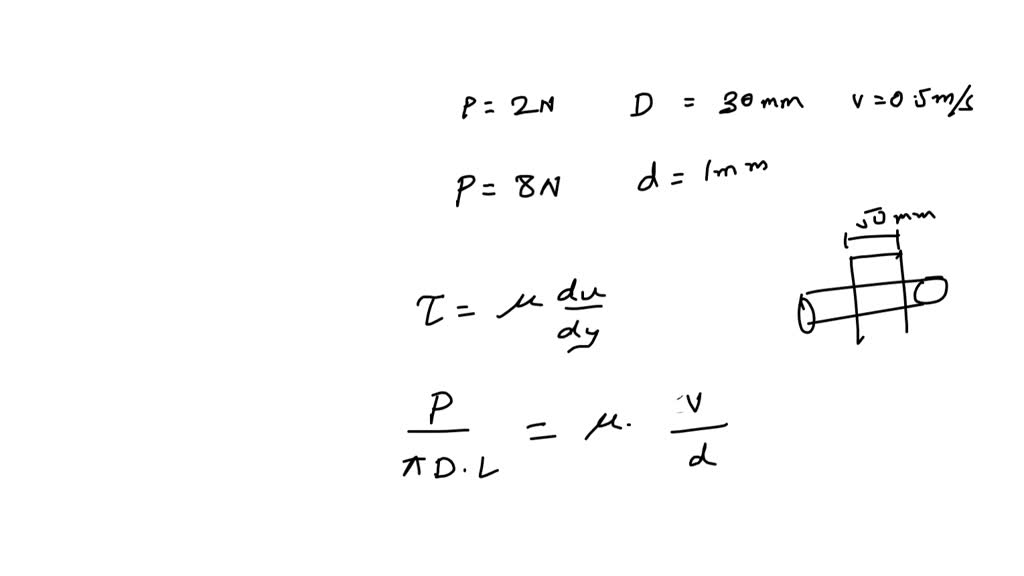 P = 2N D = 30 mm v = 0.5 m/s
P = 8N d = 1mm
50 mm
τ = μ du/dy
P/πD.L = μ. v/d